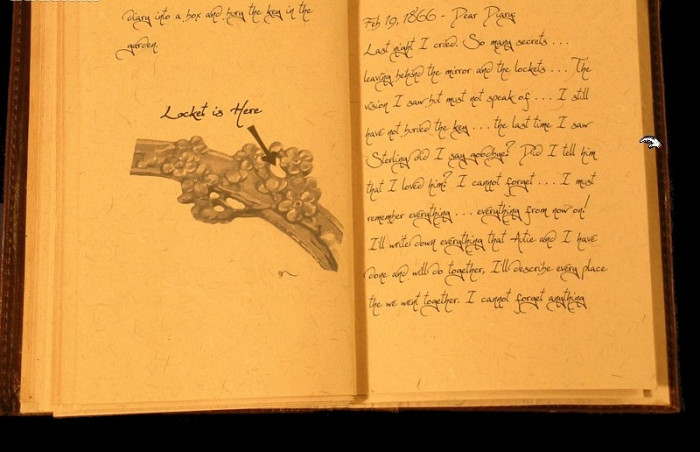 diary into a box and bury the key in the
garden.
Locket is Here
Feb 19, 1866 - Dear Diary,
Last night I cried. So many secrets . . .
leaving behind the mirror and the lockets . . . The
vision I saw but must not speak of . . . I still
have not buried the key . . . the last time I saw
Sterling did I say goodbye? Did I tell him
that I loved him? I cannot forget . . . I must
remember everything . . . everything from now on!
I'll write down everything that Astie and I have
done and will do together, I'll describe every place
the we went together. I cannot forget anything